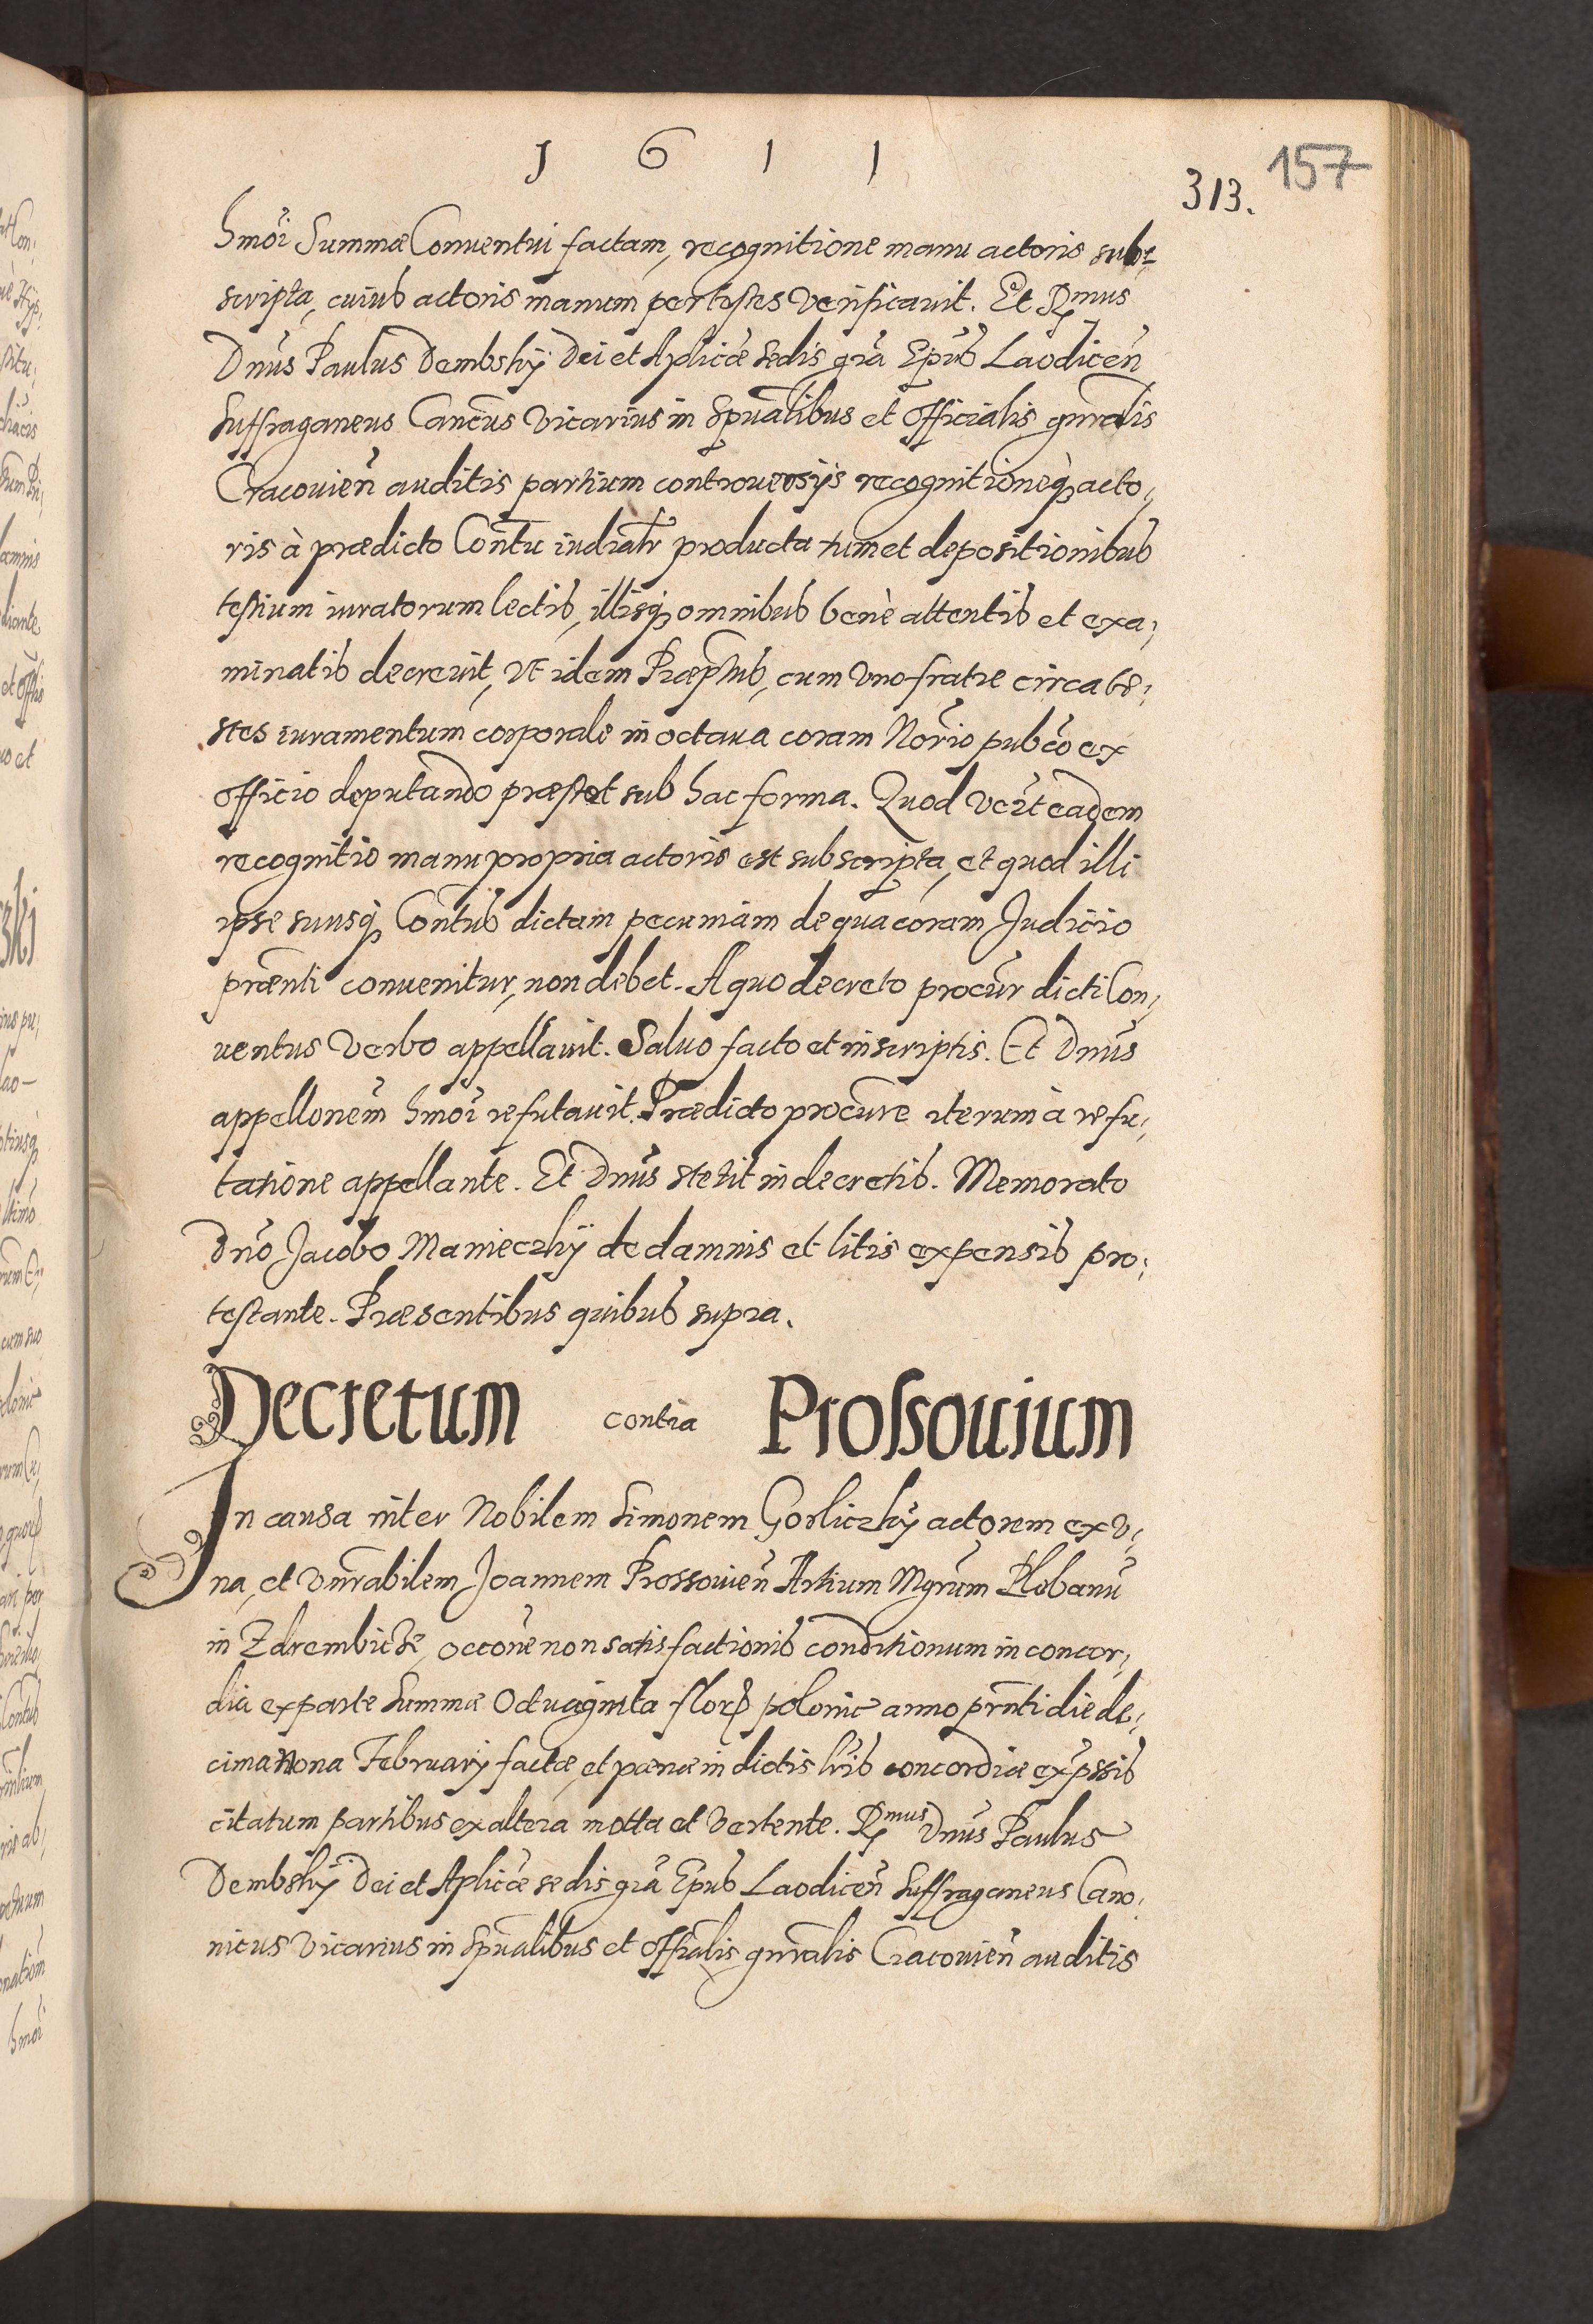 1 6 1 1
157
313.
hmõi Summæ Conuentui factam, recognitione manu actoris sub
scripta, cuius actoris manum per testes verificauit. Et Rmus
Dnus Paulus Dembskÿ Dei et Aplicæ Sedis grã Epus Laodiceñ
Suffraganeus Cancus Vicarius in Spualibus et Officialis gnralis
Cracouieñ auditis partium controuersijs recognitioneq acto,
ris à prædicto Contu iudialr producta tum et depositionibus
testium iuratorum lectis, illisq omnibus benè attentis et exa,
minatis decreuit, vt idem Præptus, cum vno fratre circa te,
stes iuramentum corporale in octaua coram Norio pubco ex
officio deputando præstet sub hac forma. Quod vert eadem
recognitio manu propria actoris est subscripta, et quod illi
ipse suusq Contus dictam pecuniam de qua coram Judicio
prænti conuenitur, non debet. A quo decreto procur dicti Con,
uentus verbo appellauit. Saluo facto et in scriptis. Et Dnus
appellonem hmõi refutauit. Prædicto procure iterum à refu,
tatione appellante. Et Dnus stetit in decretis. Memorato
Dno Jacobo Manieczkÿ de damnis et litis expensis pro,
testante. Præsentibus quibus supra.
Decretum contra Prossouium
In causa inter Nobilem Simonem Gorliczkÿ actorem ex v,
na, et vnrabilem Joannem Prossouieñ Artium Mgrum Plebanũ
in Zdrembicze, occone non satisfactionis conditionum in concor,
dia ex parte Summæ Octuaginta flor polonic anno prnti die de,
cima nona Februarij factæ, et pænæ in dictis lris concordiæ expssis
citatum partibus ex altera motta et vertente. Rmus Dnus Paulus
Dembskÿ Dei et Aplicæ sedis grã Epus Laodiceñ Suffraganeus Cano,
nicus Vicarius in Spualibus et offialis gnralis Cracouieñ auditis